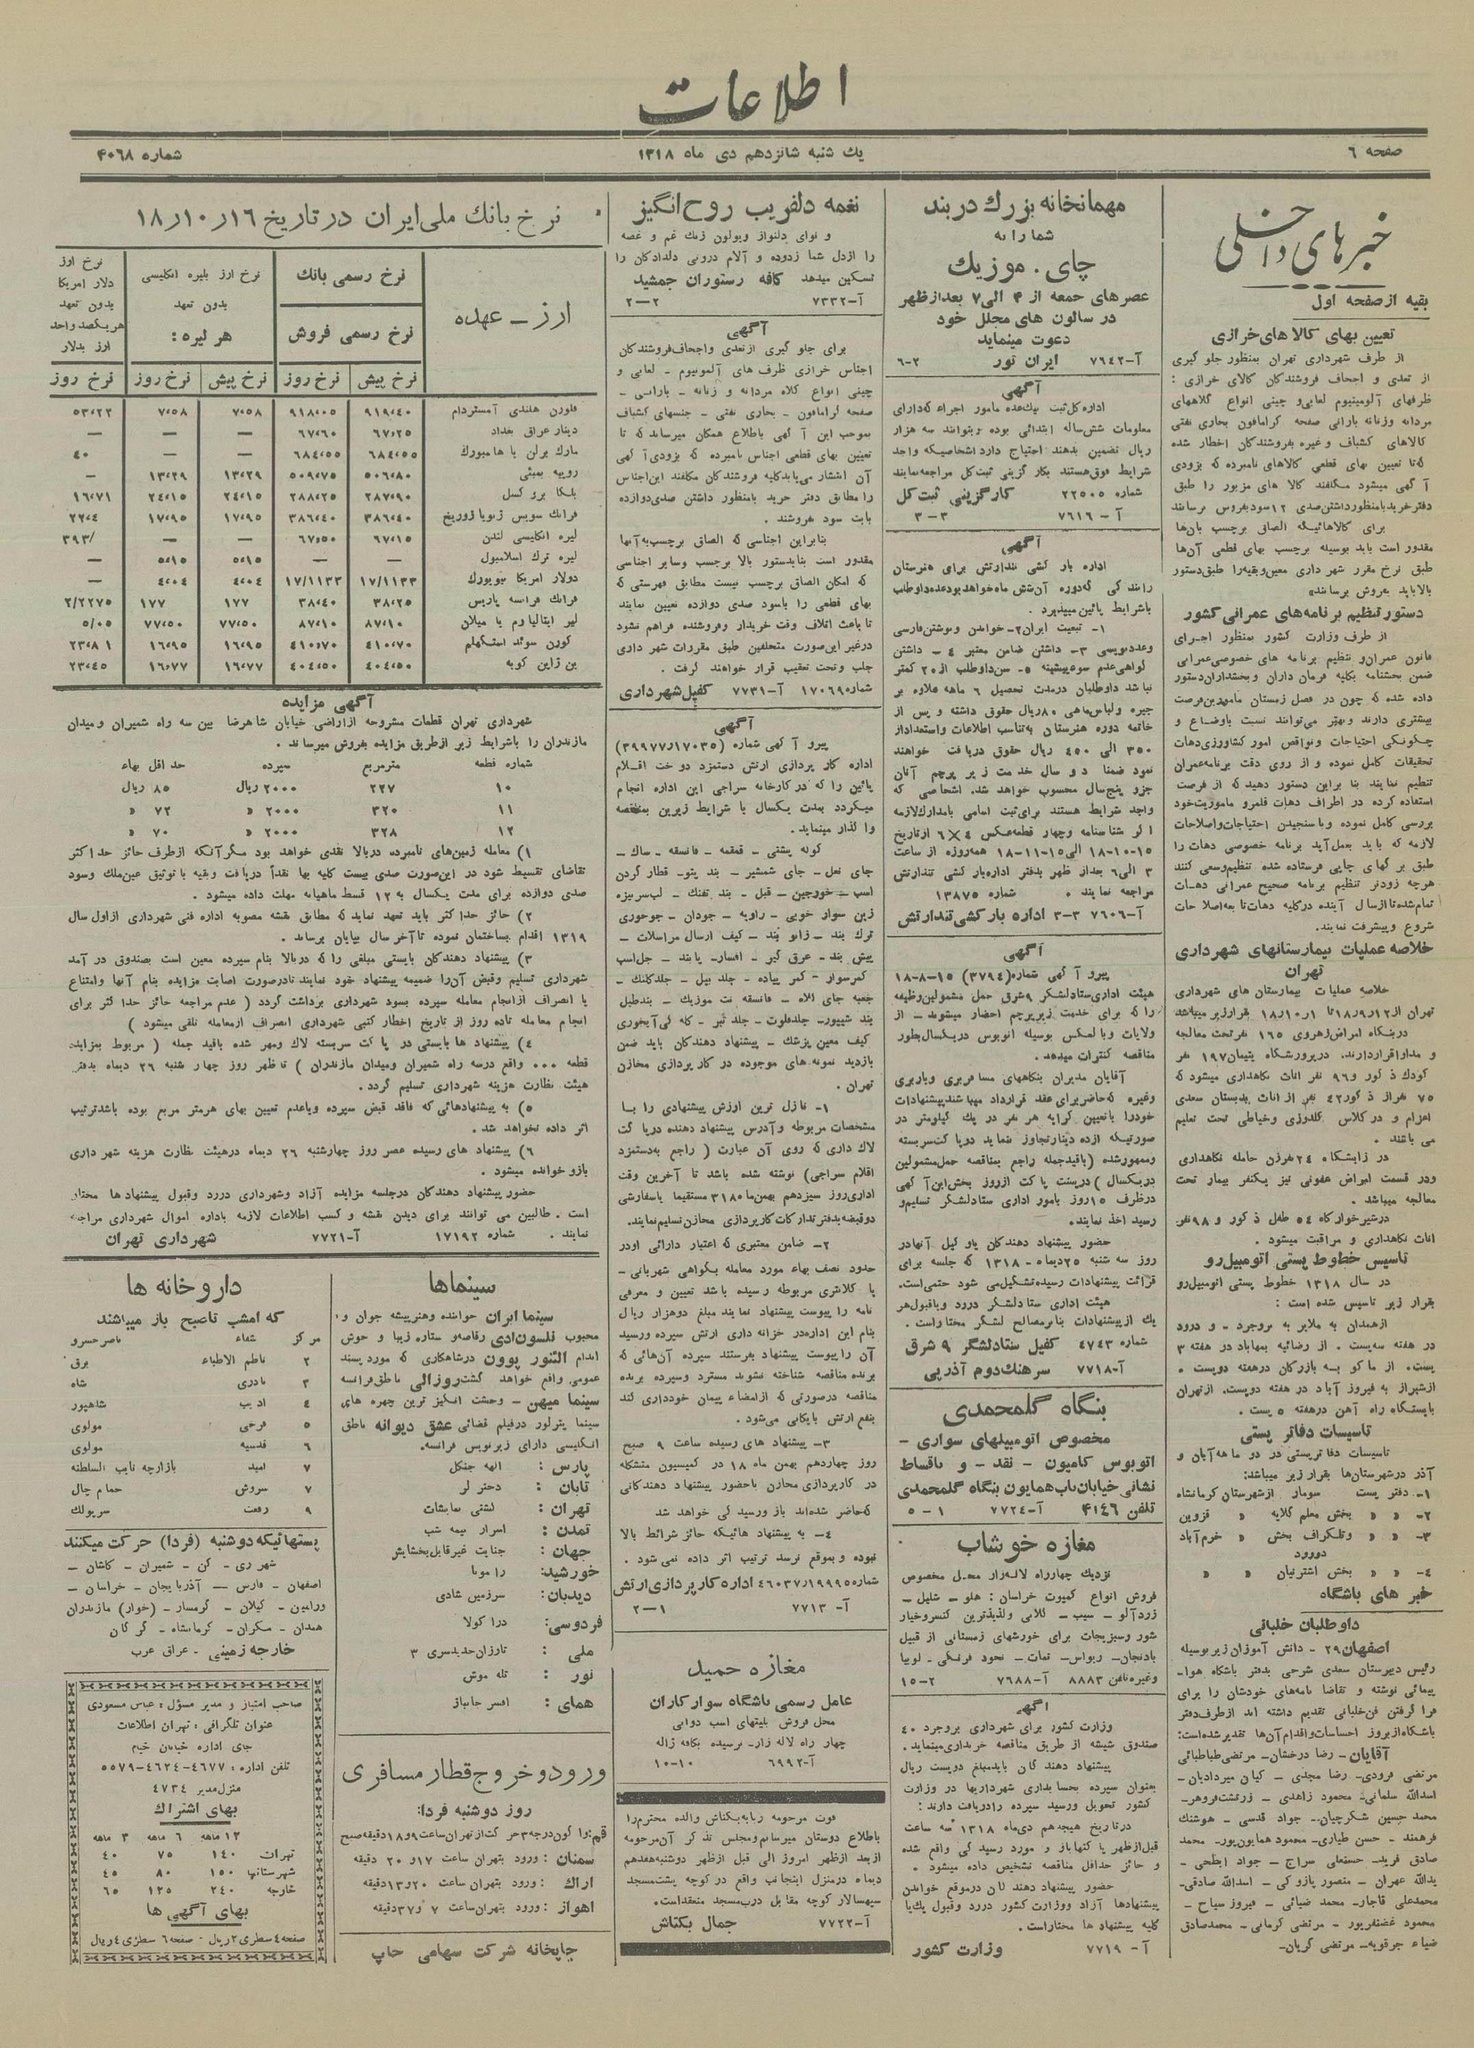 اطلاعات
صفحه ۶
یك شنبه شانزدهم دی ماه ۱۳۱۸
شماره ۴۰۶۸
خبرهای داخلی
بقیه از صفحه اول
تعیین بهای کالاهای خرازی
از طرف شهرداری تهران بمنظور جلو گیری
از تعدی و اجحاف فروشندگان کالای خرازی :
ظرفهای آلومینیوم لعابی و چینی انواع کلاههای
مردانه وزنانه بارانی صفحه گرامافون بخاری نفتی
کالاهای کشباف و غیره بفروشندگان اخطار شده
که تا تعیین بهای قطعی کالاهای نامبرده که بزودی
آگهی میشود مکلفند کالا های مزبور را طبق
دفتر خرید بامنظور داشتن صدی ۱۲ سود بفروش برسانند
برای کالاهائیکه الصاق برچسب بآن‌ها
مقدور است باید بوسیله برچسب بهای قطعی آن‌ها
طبق نرخ مقرر شهرداری معین و بقیه را طبق دستور
بالا باید بفروش برسانند
دستور تنظیم برنامه‌های عمرانی کشور
از طرف وزارت کشور بمنظور اجرای
قانون عمران و تنظیم برنامه های خصوصی عمرانی
ضمن بخشنامه بکلیه فرمان داران و بخشداران دستور
داده شده که چون در فصل زمستان مامورین فرصت
بیشتری دارند و بهتر می‌توانند نسبت باوضاع و
چگونگی احتیاجات و نواقص امور کشاورزی دهات
تحقیقات کامل نموده و از روی دقت برنامه عمران
تنظیم نمایند بنا براین دستور دهید که از فرصت
استفاده کرده در اطراف دهات قلمرو ماموریت خود
بررسی کامل نموده و با سنجیدن احتیاجات و اصلاحات
لازمه که باید بعمل آید برنامه خصوصی دهات را
طبق بر گهای چاپی فرستاده شده تنظیم و سعی کنند
هرچه زودتر تنظیم برنامه صحیح عمرانی دهات
تمام شده تا از سال آینده در کلیه دهات تا بعه اصلاحات
شروع و پیشرفت نمایند.
خلاصه عملیات بیمارستانهای شهرداری
تهران
خلاصه عملیات بیمارستان های شهرداری
تهران از ۱۸ر۹ر۱۲ تا ۱۸ر۱۰ر۱ بقرار زیر میباشد
در بنگاه امراض زهروی ۱۶۵ نفر تحت معالجه
و مداوا قرار دارند. در پرورشگاه یتیمان ۱۹۷ نفر
کودك ذ کور و ۹۶ نفر اناث نگاهداری میشود که
۷۵ نفر از ذ کور و ۴۲ نفر از اناث بدبستان سعدی
اعزام و در کلاس گلدوزی و خیاطی تحت تعلیم
می باشند .
در زایشگاه ۲۴ نفر زن حامله نگاهداری
و در قسمت امراض عفونی نیز یکنفر بیمار تحت
معالجه میباشد .
در شیر خوارگاه ۵۴ طفل ذ کور و ۹۸ نفر
اناث نگاهداری و مراقبت میشود .
تاسیس خطوط پستی اتومبیل‌رو
در سال ۱۳۱۸ خطوط پستی اتومبیل‌رو
بقرار زیر تاسیس شده است :
از همدان به ملایر به بروجرد - و درود
در هفته سه‌پست . از رضائیه بمهاباد در هفته ۳
پست. از ما کو به بازرگان در هفته دوپست .
از شیراز به فیروز آباد در هفته دوپست. از تهران
بایستگاه راه آهن در هفته ۵ پست .
تاسیسات دفاتر پستی
تاسیسات دفاتر پستی در دو ماهه آبان و
آذر در شهرستان‌ها بقرار زیر میباشد:
۱- دفتر پست سومار از شهرستان کرمانشاه
۲- « « بخش معلم کلایه « قزوین
۳- « « و تلگراف بخش « خرم آباد
دورود
۴- « « بخش اشترنیان « «
خبر های باشگاه
داوطلبان خلبانی
اصفهان ۲۹ - دانش آموزان زیر بوسیله
رئیس دبیرستان سعدی شرحی بدفتر باشگاه هوا-
پیمائی نوشته و تقاضا نامه‌های خودشان را برای
فرا گرفتن فن خلبانی تقدیم داشته اند از طرف دفتر
باشگاه از بروز احساسات و اقدام آن‌ها تقدیر شده است:
آقایان- رضا درخشان- مرتضی طباطبائی
مرتضی فرودی- رضا مجدی - کیان میردادیان-
اسدالله سلمانی- محمود زاهدی - زرتشت فروهر-
محمد حسین شکرچیان- جواد قدسی - هوشنك
فرهمند - حسن طیاری- محمود همایون‌پور- محمد
صادق فرید- حسنعلی سراج - جواد ابطحی-
یدالله عهران - منصور پازوکی - اسدالله صادقی-
محمدعلی قاجار- محمد ضیائی - فیروز سیاح -
محمود غضنفرپور - مرتضی کرمانی - محمدصادق
ضیاء جرقویه- مرتضی کریان-
مهمانخانه بزرك دربند
شما را به
چای . موزیك
عصر های جمعه از ۴ الی ۷ بعد از ظهر
در سالون های مجلل خود
دعوت مینماید
آ-۷۶۴۲ ایران تور ۲-۶
آگهی
اداره کل ثبت بیك‌عده مامور اجراء که دارای
معلومات شش ساله ابتدائی بوده و بتوانند سه هزار
ریال تضمین بدهند احتیاج دارد اشخاصیکه واجد
شرایط فوق هستند بکار گزینی ثبت کل مراجعه نمایند
شماره ۲۲۵۰۵ کارگزینی ثبت کل
آ - ۷۶۱۶ ۳-۳
آگهی
اداره بار کشی تندارتش برای هنرستان
رانند گی که دوره آن شش ماه خواهد بود عده داوطلب
با شرایط پائین میپذیرد .
۱- تبعیت ایران ۲- خواندن و نوشتن فارسی
و عددنویسی ۳- داشتن ضامن معتبر ۴ - داشتن
گواهی عدم سوء پیشینه ۵- سن داوطلب از ۲۰ کمتر
نباشد داوطلبان در مدت تحصیل ۶ ماهه علاوه بر
جیره و لباس ماهی ۸۰ ریال حقوق داشته و پس از
خاتمه دوره هنرستان به تناسب اطلاعات و استعداد از
۳۵۰ الی ۴۵۰ ریال حقوق دریافت خواهند
نمود ضمنا دو سال خدمت زیر پرچم آنان
جزو پنج سال محسوب خواهد شد. اشخاصی که
واجد شرایط هستند برای ثبت اسامی بامدارك لازمه
از شناسنامه و چهار قطعه عکس ۴×۶ از تاریخ
۱۵-۱۰-۱۸ الی ۱۵-۱۱-۱۸ همه‌روزه از ساعت
۳ الی ۶ بعد از ظهر بدفتر اداره بار کشی تندارتش
مراجعه نمایند . شماره ۱۳۸۷۵
آ-۷۶۰۶ ۳-۳ اداره بار کشی تندارتش
آگهی
پیرو آ گهی شماره (۳۷۹۴) ۱۵-۸-۱۸
هیئت اداری ستاد لشگر ۹ شرق حمل مشمولین وظیفه
را که برای خدمت زیر پرچم احضار میشوند - از
ولایات و بالعکس بوسیله اتوبوس در یکسال بطور
مناقصه کنترات میدهد .
آقایان مدیران بنگاههای مسافربری و باربری
وغیره که حاضر برای عقد قرارداد میباشند پیشنهادات
خود را باتعیین کرایه هر نفر در یك کیلومتر در
صورتیکه از ده دینار تجاوز ننماید در پا کت سربسته
وممهور شده (باقید جمله راجع بمناقصه حمل مشمولین
در یکسال) در پست پا کت از روز پخش این آ گهی
در ظرف ۱۵ روز بامور اداری ستاد لشگر تسلیم و
رسید اخذ نمایند.
حضور پیشنهاد دهندگان یا و کیل آنها در
روز سه شنبه ۲۵ دیماه - ۱۳۱۸ که جلسه برای
قرائت پیشنهادات رسیده تشکیل می شود حتمی است.
هیئت اداری ستادلشگر دررد و یا قبول هر
یك از پیشنهادات بنا بر مصالح لشگر مختار است .
شماره ۴۷۴۳ کفیل ستاد لشگر ۹ شرق
آ-۷۷۱۸ سرهنك دوم آذرپی
بنگاه گلمحمدی
مخصوص اتومبیلهای سواری -
اتوبوس کامیون - نقد - و باقساط
نشانی خیابان باب همایون بنگاه گلمحمدی
تلفن ۴۱۴۶ آ-۷۷۲۴ ۱-۵
مغازه خوشاب
نزدیك چهارراه لاله‌زار محل مخصوص
فروش انواع کمپوت خراسان : هلو - شلیل -
زردآلو - سیب - گلابی و لذیذترین کنسرو خیار
شور و سبزیجات برای خورشهای زمستانی از قبیل
بادنجان - ریواس - نعناع - نخود فرنگی - لوبیا
وغیره تلفن ۸۸۸۳ آ-۷۶۸۸ ۲-۱۵
آگهی
وزارت کشور برای شهرداری بروجرد ۴۰
صندوق شیشه از طریق مناقصه خریداری مینماید.
پیشنهاد دهند گان باید مبلغ دویست ریال
بعنوان سپرده بحسابداری شهرداریها در وزارت
کشور تحویل و رسید سپرده را دریافت دارند :
در تاریخ هیجدهم دی‌ماه ۱۳۱۸ سه ساعت
قبل از ظهر پا کتها باز و مورد رسید گی واقع شده
و حائز حداقل مناقصه تشخیص داده میشود .
حضور پیشنهاد دهند گان در موقع خواندن
پیشنهادها آزاد و وزارت کشور دررد و قبول یك یا
کلیه پیشنهاد ها مختار است .
آ- ۷۷۱۹ وزارت کشور
نغمه دلفریب روح‌انگیز
و نوای دلنواز ویولون زنك غم و غصه
را از دل شما زدوده و آلام درونی دلدادگان را
تسکین میدهد کافه رستوران جمشید
آ-۷۳۳۲ ۲-۲
آگهی
برای جلو گیری از تعدی و اجحاف فروشندگان
اجناس خرازی ظرف های آلمونیوم - لعابی و
چینی انواع کلاه مردانه و زنانه - بارانی -
صفحه گرامافون - بخاری نفتی - جنسهای کشباف
بموجب این آ گهی باطلاع همگان میرساند که تا
تعیین بهای قطعی اجناس نامبرده که بزودی آ گهی
آن انتشار می‌یابد کلیه فروشندگان مکلفند این اجناس
را مطابق دفتر خرید بامنظور داشتن صدی دوازده
بابت سود بفروشند .
بنابراین اجناسی که الصاق برچسب به آنها
مقدور است بنا بدستور بالا برچسب و سایر اجناسی
که امکان الصاق برچسب نیست مطابق فهرستی که
بهای قطعی را باسود صدی دوازده تعیین نمایند
تا باعث اتلاف وقت خریدار و فروشنده فراهم نشود
درغیر این صورت متخلفین طبق مقررات شهرداری
جلب و تحت تعقیب قرار خواهند گرفت .
شماره ۱۷۰۶۹ آ-۷۷۳۱ کفیل شهرداری
آگهی
پیرو آ گهی شماره (۱۷۰۳۵ر۳۹۹۷۷)
اداره کار پردازی ارتش دستمزد دوخت اقلام
پائین را که در کارخانه سراجی این اداره انجام
میگردد بمدت یکسال با شرایط زیرین بمناقصه
وا گذار مینماید.
کوله پشتی - قمقمه - فانسقه - ساك -
جای نعل - جای شمشیر - بند پتو - قطار گردن
اسب - خورجین - قبل - بند تفنك - لب‌سریزه
زین سوار خوبی - راویه - جودان - جوخوری
ترك بند - زانو بند - کیف ارسال مراسلات -
پیش بند - عرق گیر - افسار - پابند - جل‌اسب
کمرسوار - کمر پیاده - جلد بیل - جلدکلنك -
جعبه جای آلات - فانسقه نت موزیك - بندطبل
بند شیپور - جلدفلوت - جلد تبر - کله گی آبخوری
کیف معین پزشك - پیشنهاد دهندگان باید ضمن
بازدید نمونه های موجوده در کار پردازی مخازن
تهران .
۱- نازل ترین ارزش پیشنهادی را با
مشخصات مربوطه و آدرس پیشنهاد دهنده در پا کت
لاك داری که روی آن عبارت ( راجع به دستمزد
اقلام سراجی) نوشته شده باشد تا آخرین وقت
اداری روز سیزدهم بهمن ماه ۳۱۸ مستقیما یا سفارشی
دوقبضه بدفتر تدارکات کارپردازی مخازن تسلیم نمایند.
۲- ضامن معتبری که اعتبار دارائی او در
حدود نصف بهاء مورد معامله بگواهی شهربانی -
یا کلانتری مربوطه رسیده باشد تعیین و معرفی
نامه را پیوست پیشنهاد نمایند مبلغ دوهزار ریال
بنام این اداره در خزانه داری ارتش سپرده و رسید
آن را پیوست پیشنهاد بفرستند سپرده آن‌هائی که
برنده مناقصه شناخته نشوند مسترد و سپرده برنده
مناقصه در صورتی که از امضاء پیمان خودداری کند
بنفع ارتش بایگانی می‌شود .
۳- پیشنهاد های رسیده ساعت ۹ صبح
روز چهاردهم بهمن ماه ۱۸ در کمیسیون متشکله
در کارپردازی مخازن باحضور پیشنهاد دهندگانی
که حاضر شده‌اند باز و رسید گی خواهد شد
۴- به پیشنهاد هائیکه حائز شرائط بالا
نبوده و بموقع نرسد ترتیب اثر داده نمی شود .
شماره ۱۹۹۹۵ر۴۶۰۳۷ اداره کار پردازی ارتش
آ- ۷۷۱۳ ۱-۲
مغازه حمید
عامل رسمی باشگاه سوارکاران
محل فروش بلیتهای اسب دوانی
چهار راه لاله زار- نرسیده بکافه ژاله
آ-۶۹۹۲ ۱۰-۱۰
فوت مرحومه ربابه بکتاش والده محترم را
باطلاع دوستان میرسانم و مجلس تذ کر آن مرحومه
از بعد از ظهر امروز الی قبل از ظهر دوشنبه هفدهم
دیماه در منزل اینجانب واقع در کوچه پشت مسجد
سپهسالار کوچه مقابل درب مسجد منعقد است .
آ-۷۷۲۲ جمال بکتاش
نرخ بانك ملی ایران در تاریخ ۱۶ر۱۰ر۱۸
ارز - عهده
نرخ رسمی بانك
نرخ رسمی فروش
نرخ پیش | نرخ روز
نرخ ارز بلیره انگلیسی
بدون تعهد
هر لیره :
نرخ پیش | نرخ روز
نرخ ارز
دلار امریکا
بدون تعهد
هر یکصد واحد
ارز بدلار
نرخ روز
فلورن هلندی آمستردام ۹۱۹،۴۰ ۹۱۸،۰۵ ۷،۵۸ ۷،۵۸ ۵۳،۲۲
دینار عراق بغداد ۶۷،۲۵ ۶۷،۶۰ — — —
مارك برلن یا هامبورك ۶۸۴،۵۵ ۶۸۴،۵۵ — — ۴۰
روپیه بمبئی ۵۰۶،۸۰ ۵۰۹،۷۵ ۱۳،۲۹ ۱۳،۲۹ —
بلگا بروکسل ۲۸۷،۹۰ ۲۸۸،۲۵ ۲۴،۱۵ ۲۴،۱۵ ۱۶،۷۱
فرانك سویس ژنویا زوریخ ۳۸۶،۴۰ ۳۸۶،۴۰ ۱۷،۹۵ ۱۷،۹۵ ۲۲،۴
لیره انگلیسی لندن ۶۷،۱۵ ۶۷،۵۰ — — ۳۹۳/
لیره ترك اسلامبول — — ۵،۱۵ ۵،۱۵ —
دولار امریکا نیویورك ۱۷/۱۱۳۳ ۱۷/۱۱۳۳ ۴،۰۴ ۴،۰۴ —
فرانك فرانسه پاریس ۳۸،۲۵ ۳۸،۴۰ ۱۷۷ ۱۷۷ ۲/۲۲۷۵
لیر ایتالیا رم یا میلان ۸۷،۱۰ ۸۷،۱۰ ۷۷،۵۰ ۷۷،۵۰ ۵/۰۵
کورن سوئد استکهلم ۴۱۰،۷۰ ۴۱۰،۷۰ ۱۶،۹۵ ۱۶،۹۵ ۲۳،۸۱
ین ژاپن کوبه ۴۰۴،۵۰ ۴۰۴،۵۰ ۱۶،۷۷ ۱۶،۷۷ ۲۳،۴۵
آگهی مزایده
شهرداری تهران قطعات مشروحه از اراضی خیابان شاهرضا بین سه راه شمیران و میدان
مازندران را باشرایط زیر ازطریق مزایده بفروش میرساند .
شماره قطعه مترمربع سپرده حداقل بهاء
۱۰ ۲۲۷ ۲۰۰۰ ریال ۸۵ ریال
۱۱ ۳۲۰ ۲۰۰۰ « ۷۲ «
۱۲ ۳۲۸ ۲۰۰۰ « ۷۰ «
۱) معامله زمین‌های نامبرده در بالا نقدی خواهد بود مگر آنکه ازطرف حائز حدا کثر
تقاضای تقسیط شود در این صورت صدی بیست کلیه بها نقداً دریافت و بقیه با توثیق عین ملك و سود
صدی دوازده برای مدت یکسال به ۱۲ قسط ماهیانه مهلت داده میشود .
۲) حائز حدا کثر باید تعهد نماید که مطابق نقشه مصوبه اداره فنی شهرداری از اول سال
۱۳۱۹ اقدام بساختمان نموده تا آخر سال بپایان برساند .
۳) پیشنهاد دهندگان بایستی مبلغی را که در بالا بنام سپرده معین است بصندوق در آمد
شهرداری تسلیم و قبض آن را ضمیمه پیشنهاد خود نمایند تا در صورت اصابت مزایده بنام آنها و امتناع
یا انصراف از انجام معامله سپرده بسود شهرداری برداشت گردد ( عدم مراجعه حائز حدا کثر برای
انجام معامله تا ده روز از تاریخ اخطار کتبی شهرداری انصراف از معامله تلقی میشود )
۴) پیشنهاد ها بایستی در پا کت سربسته لاك و مهر شده باقید جمله ( مربوط بمزایده
قطعه ... واقع در سه راه شمیران و میدان مازندران ) تا ظهر روز چهار شنبه ۲۶ دیماه بدفتر
هیئت نظارت هزینه شهرداری تسلیم گردد .
۵) به پیشنهادهائی که فاقد قبض سپرده و یا عدم تعیین بهای هرمتر مربع بوده باشد ترتیب
اثر داده نخواهد شد .
۶) پیشنهاد های رسیده عصر روز چهارشنبه ۲۶ دیماه در هیئت نظارت هزینه شهرداری
باز و خوانده میشود .
حضور پیشنهاد دهندگان در جلسه مزایده آزاد و شهرداری دررد و قبول پیشنهاد ها مختار
است . طالبین می توانند برای دیدن نقشه و کسب اطلاعات لازمه باداره اموال شهرداری مراجعه
نمایند . شماره ۱۷۱۹۲ آ-۷۷۲۱ شهرداری تهران
سینماها
سینما ایران خواننده و هنرپیشه جوان و
محبوب نلسون‌ادی رقاصه و ستاره زیبا و خوش
اندام النور پوون در شاهکاری که مورد پسند
عمومی واقع خواهد گشت روزالی ناطق فرانسه
سینما میهن - وحشت انگیز ترین چهره های
سینما پیترلور در فیلم قضائی عشق دیوانه ناطق
انگلیسی دارای زیرنویس فرانسه.
پارس : الهه جنگل
تابان : دختر لر
تهران : کشتی نمایشات
تمدن : اسرار نیمه شب
جهان : جنایت غیر قابل بخشایش
خورشید: رامونا
دیدبان: سرزمین شادی
فردوسی: دراکولا
ملی : تارزان جدید سری ۳
نور : تله موش
همای : افسر جانباز
ورود و خروج قطار مسافری
روز دوشنبه فردا:
قم: واگون درجه ۳ حرکت از تهران ساعت ۹ و ۱۸ دقیقه صبح
سمنان : ورود بتهران ساعت ۱۷ و ۲۰ دقیقه
اراك : ورود بتهران ساعت ۲۰ و ۱۳ دقیقه
اهواز : ورود بتهران ساعت ۷ و ۳۷ دقیقه
چاپخانه شرکت سهامی چاپ
داروخانه ها
که امشب تا صبح باز میباشند
مرکز شفاء ناصرخسرو
۲ ناظم الاطباء برق
۳ نادری شاه
۴ ادیب شاهپور
۵ فرخی مولوی
۶ قدسیه مولوی
۷ امید بازارچه نایب السلطنه
۷ سروش حمام چال
۹ رفعت سرپولك
پستهائیکه دوشنبه (فردا) حرکت میکنند
شهر ری - کن - شمیران - کاشان -
اصفهان - فارس - آذربایجان - خراسان -
ورامین - گیلان - گرمسار - (خوار) مازندران
همدان - مکران - کرمانشاه - گرگان
خارجه زمینی - عراق عرب
صاحب امتیاز و مدیر مسؤل : عباس مسعودی
عنوان تلگرافی : تهران اطلاعات
جای اداره خیابان خیام
تلفن اداره : ۴۶۷۷-۴۶۲۴-۵۵۷۹
منزل مدیر ۴۷۳۴
بهای اشتراك
۱۲ ماهه ۶ ماهه ۳ ماهه
تهران ۱۴۰ ۷۵ ۴۰
شهرستانها ۱۵۰ ۸۰ ۴۵
خارجه ۲۴۰ ۱۲۵ ۶۵
بهای آگهی ها
صفحه ۴ سطری ۲ ریال - صفحه ۶ سطری ۴ ریال